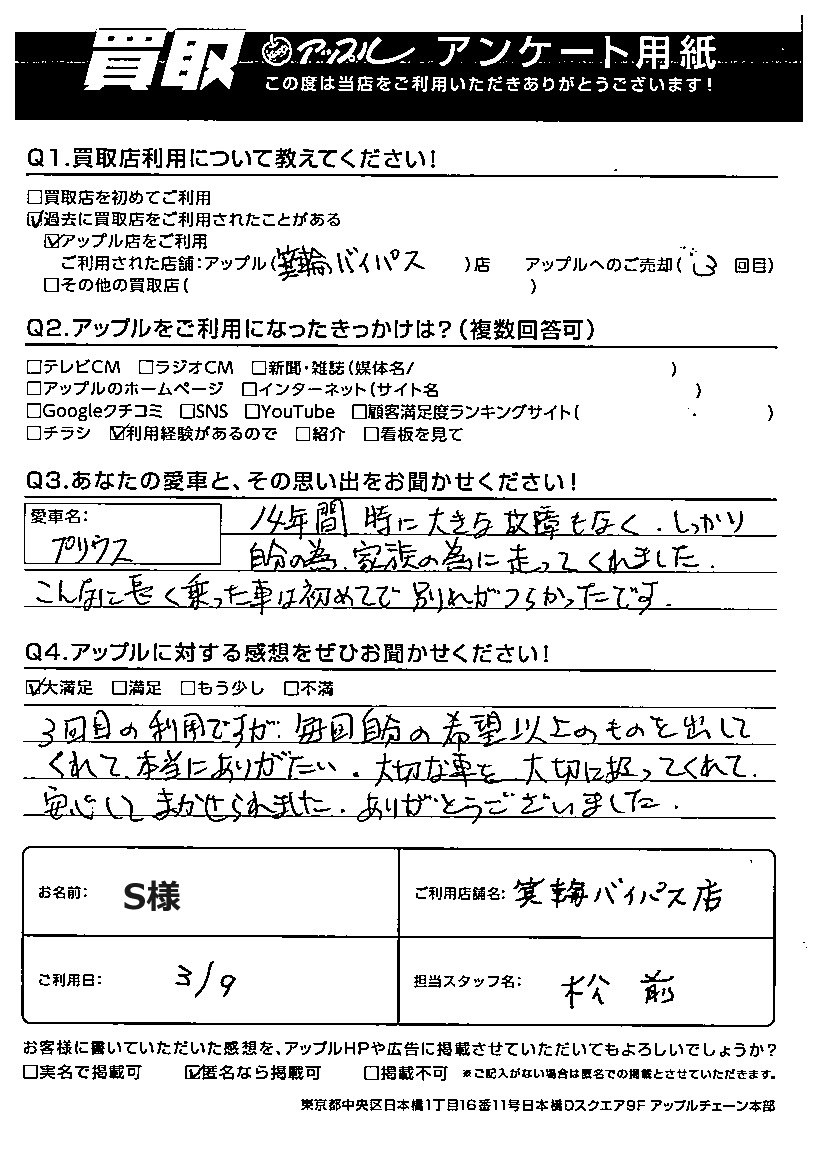 買取 アップル アンケート用紙
この度は当店をご利用いただきありがとうございます!
Q1.買取店利用について教えてください!
□買取店を初めてご利用
☑過去に買取店をご利用されたことがある
☑アップル店をご利用
ご利用された店舗:アップル(箕輪バイパス )店 アップルへのご売却( 3 回目)
□その他の買取店( )
Q2.アップルをご利用になったきっかけは?(複数回答可)
□テレビCM □ラジオCM □新聞・雑誌(媒体名/ )
□アップルのホームページ □インターネット(サイト名 )
□Googleクチコミ □SNS □YouTube □顧客満足度ランキングサイト( )
□チラシ ☑利用経験があるので □紹介 □看板を見て
Q3.あなたの愛車と、その思い出をお聞かせください!
愛車名:
プリウス
14年間 時に大きな故障もなく、しっかり
自分の為、家族の為に走ってくれました。
こんなに長く乗った車は初めてで 別れがつらかったです。
Q4.アップルに対する感想をぜひお聞かせください!
☑大満足 □満足 □もう少し □不満
3回目の利用ですが、毎回自分の希望以上のものを出して
くれて、本当にありがたい。大切な車を、大切に扱ってくれて、
安心してまかせられました。ありがとうございました。
お名前: S様
ご利用店舗名: 箕輪バイパス店
ご利用日: 3/9
担当スタッフ名: 松前
お客様に書いていただいた感想を、アップルHPや広告に掲載させていただいてもよろしいでしょうか?
□実名で掲載可 ☑匿名なら掲載可 □掲載不可 ※ご記入がない場合は匿名での掲載とさせていただきます。
東京都中央区日本橋1丁目16番11号日本橋Dスクエア9F アップルチェーン本部